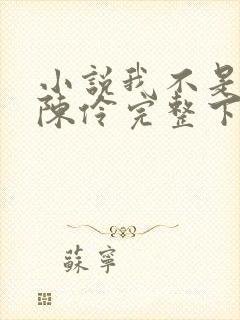 小説我不是
陳伶完整下
蘇寧